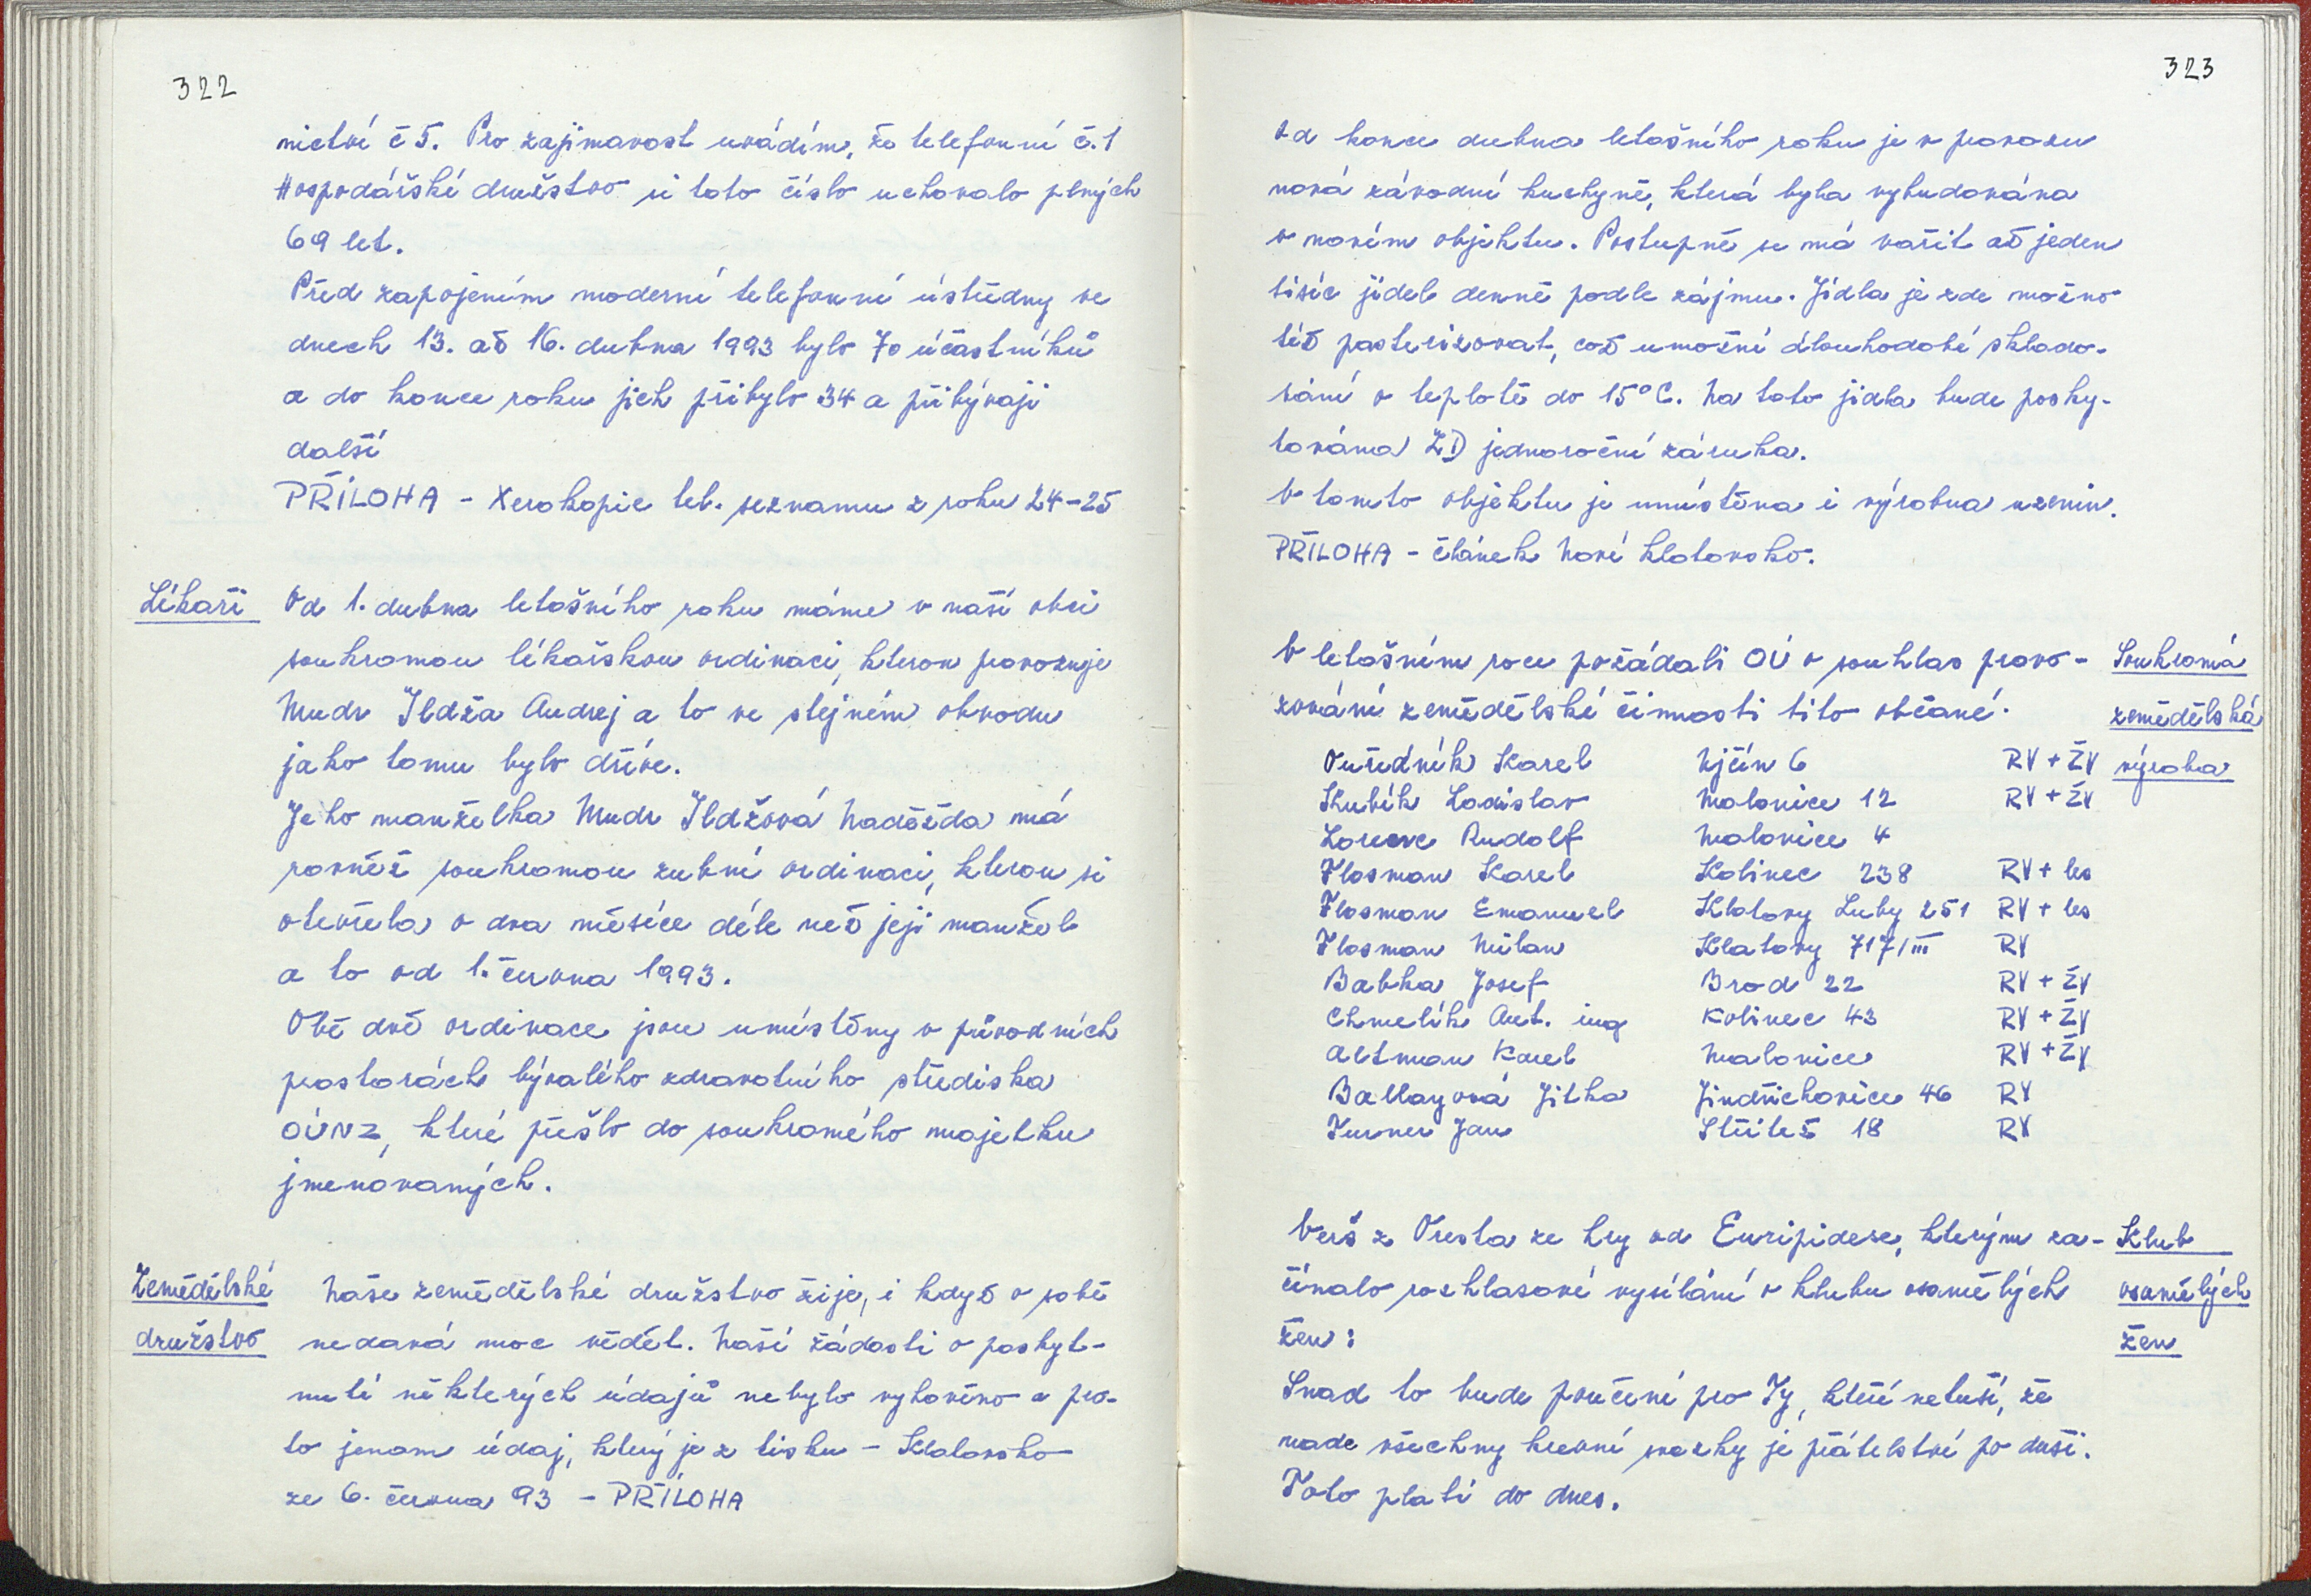 322
nictví č 5. Pro zajímavost uvádím, že telefonní č. 1
Hospodářské družstvo si toto číslo uchovalo plných
69 let.
Před zapojením moderní telefonní ústředny ve
dnech 13. až 16. dubna 1993 bylo 70 účastníků
a do konce roku jich přibylo 34 a přibývají
další
PŘÍLOHA - Xerokopie tel. seznamu z roku 24-25
Lékaři
Od 1. dubna letošního roku máme v naší obci
soukromou lékařskou ordinaci, kterou provozuje
Mudr Ildža Andrej a to ve stejném obvodu
jako tomu bylo dříve.
Jeho manželka Mudr Ildžová Naděžda má
rovněž soukromou zubní ordinaci, kterou si
otevřela o dva měsíce déle než její manžel
a to od 1. června 1993.
Obě dvě ordinace jsou umístěny v původních
prostorách bývalého zdravotního střediska
OÚNZ, které přešlo do soukromého majetku
jmenovaných.
Zemědělské
družstvo
Naše zemědělské družstvo žije, i když o sobě
nedává moc vědět. Naší žádosti o poskyt-
nutí některých údajů nebylo vyhověno a pro-
to jenom údaj, který je z tisku - Klatovsko
ze 6. června 93 - PŘÍLOHA
323
Od konce dubna letošního roku je v provozu
nová závodní kuchyně, která byla vybudována
v novém objektu. Postupně se má vařit až jeden
tisíc jídel denně podle zájmu. Jídla je zde možno
též pasterizovat, což umožní dlouhodobé sklado-
vání v teplotě do 15°C. Na tato jídla bude posky-
tována ZD jednoroční záruka.
V tomto objektu je umístěna i výrobna uzenin.
PŘÍLOHA - článek Nové Klatovsko.
V letošním roce požádali OÚ o souhlas provo-
zování zemědělské činnosti tito občané.
Soukromá
zemědělská
výroba
Ouředník Karel Ujčín 6 RV + ŽV
Kubík Ladislav Malonice 12 RV + ŽV
Lorenc Rudolf Malonice 4
Flosman Karel Kolinec 238 RV + les
Flosman Emanuel Klatovy Luby 251 RV + les
Flosman Milan Klatovy 717/III RV
Babka Josef Brod 22 RV + ŽV
Chmelík Ant. ing Kolinec 43 RV + ŽV
Altman Karel Malonice RV + ŽV
Ballayová Jitka Jindřichovice 46 RV
Turner Jan Střítež 18 RV
Verš z Oresta ze hry od Euripidese, kterým za-
čínalo rozhlasové vysílání v klubu osamělých
žen:
Klub
osamělých
žen
Snad to bude poučení pro Ty, kteří netuší, že
nade všechny krevní svazky je přátelství po duši.
Toto platí do dnes.